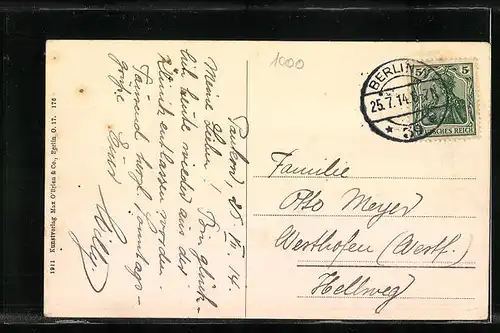 1000
Pankow, 25. VII. 14.
Meine Lieben! Bin glück-
lich heute wieder aus der
Klinik entlassen worden.
Tausend herzl. Sonntags-
grüße Euer
Willy.
1911 Kunstverlag Max O'Brien & Co., Berlin, O. 17. 176
BERLIN
25.7.14
5 5
DEUTSCHES REICH
Familie
Otto Meyer
Westhofen (Westf.)
Hellweg